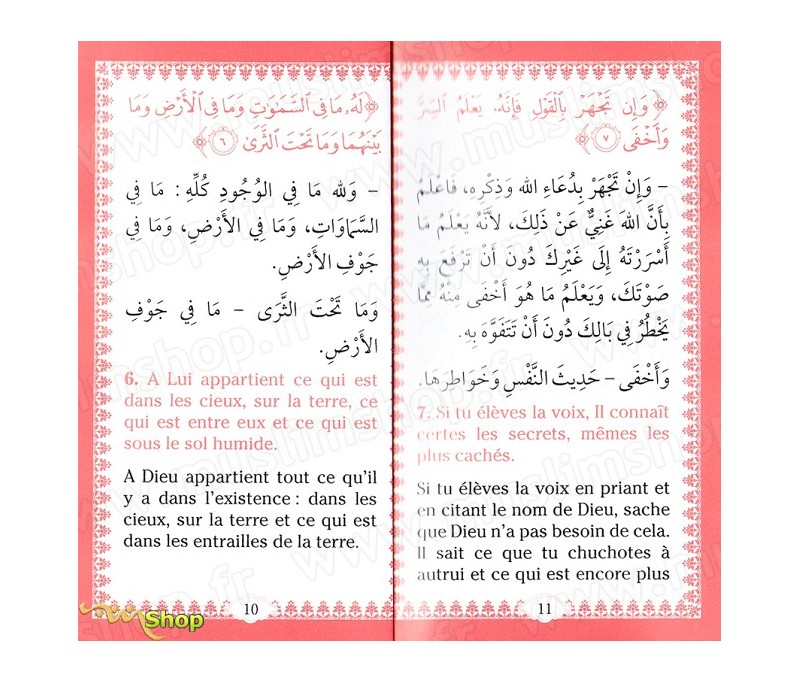 ﴿لَهُۥ مَا فِى ٱلسَّمَٰوَٰتِ وَمَا فِى ٱلْأَرْضِ وَمَا
بَيْنَهُمَا وَمَا تَحْتَ ٱلثَّرَىٰ ٦﴾
– وَلله مَا فِي الوُجُودِ كُلِّهِ: مَا فِي
السَّمَاوَاتِ، وَمَا فِي الأَرْضِ، وَمَا فِي
جَوْفِ الأَرْضِ.
وَمَا تَحْتَ الثَّرَى – مَا فِي جَوْفِ
الأَرْضِ.
6. A Lui appartient ce qui est
dans les cieux, sur la terre, ce
qui est entre eux et ce qui est
sous le sol humide.
A Dieu appartient tout ce qu'il
y a dans l'existence : dans les
cieux, sur la terre et ce qui est
dans les entrailles de la terre.
10
﴿وَإِن تَجْهَرْ بِٱلْقَوْلِ فَإِنَّهُۥ يَعْلَمُ ٱلسِّرَّ
وَأَخْفَى ٧﴾
– وَإِنْ تَجْهَرْ بِدُعَاءِ الله وَذِكْرِهِ، فَاعْلَمْ
بِأَنَّ اللهَ غَنِيٌّ عَنْ ذَلِكَ، لأَنَّهُ يَعْلَمُ مَا
أَسْرَرْتَهُ إِلَى غَيْرِكَ دُونَ أَنْ تَرْفَعَ بِهِ
صَوْتَكَ، وَيَعْلَمُ مَا هُوَ أَخْفَى مِنْهُ مِمَّا
يَخْطُرُ فِي بَالِكَ دُونَ أَنْ تَتَفَوَّهَ بِهِ.
وَأَخْفَى – حَدِيثَ النَّفْسِ وَخَوَاطِرَهَا.
7. Si tu élèves la voix, Il connaît
certes les secrets, mêmes les
plus cachés.
Si tu élèves la voix en priant et
en citant le nom de Dieu, sache
que Dieu n'a pas besoin de cela.
Il sait ce que tu chuchotes à
autrui et ce qui est encore plus
11
www.muslimshop.fr
Shop